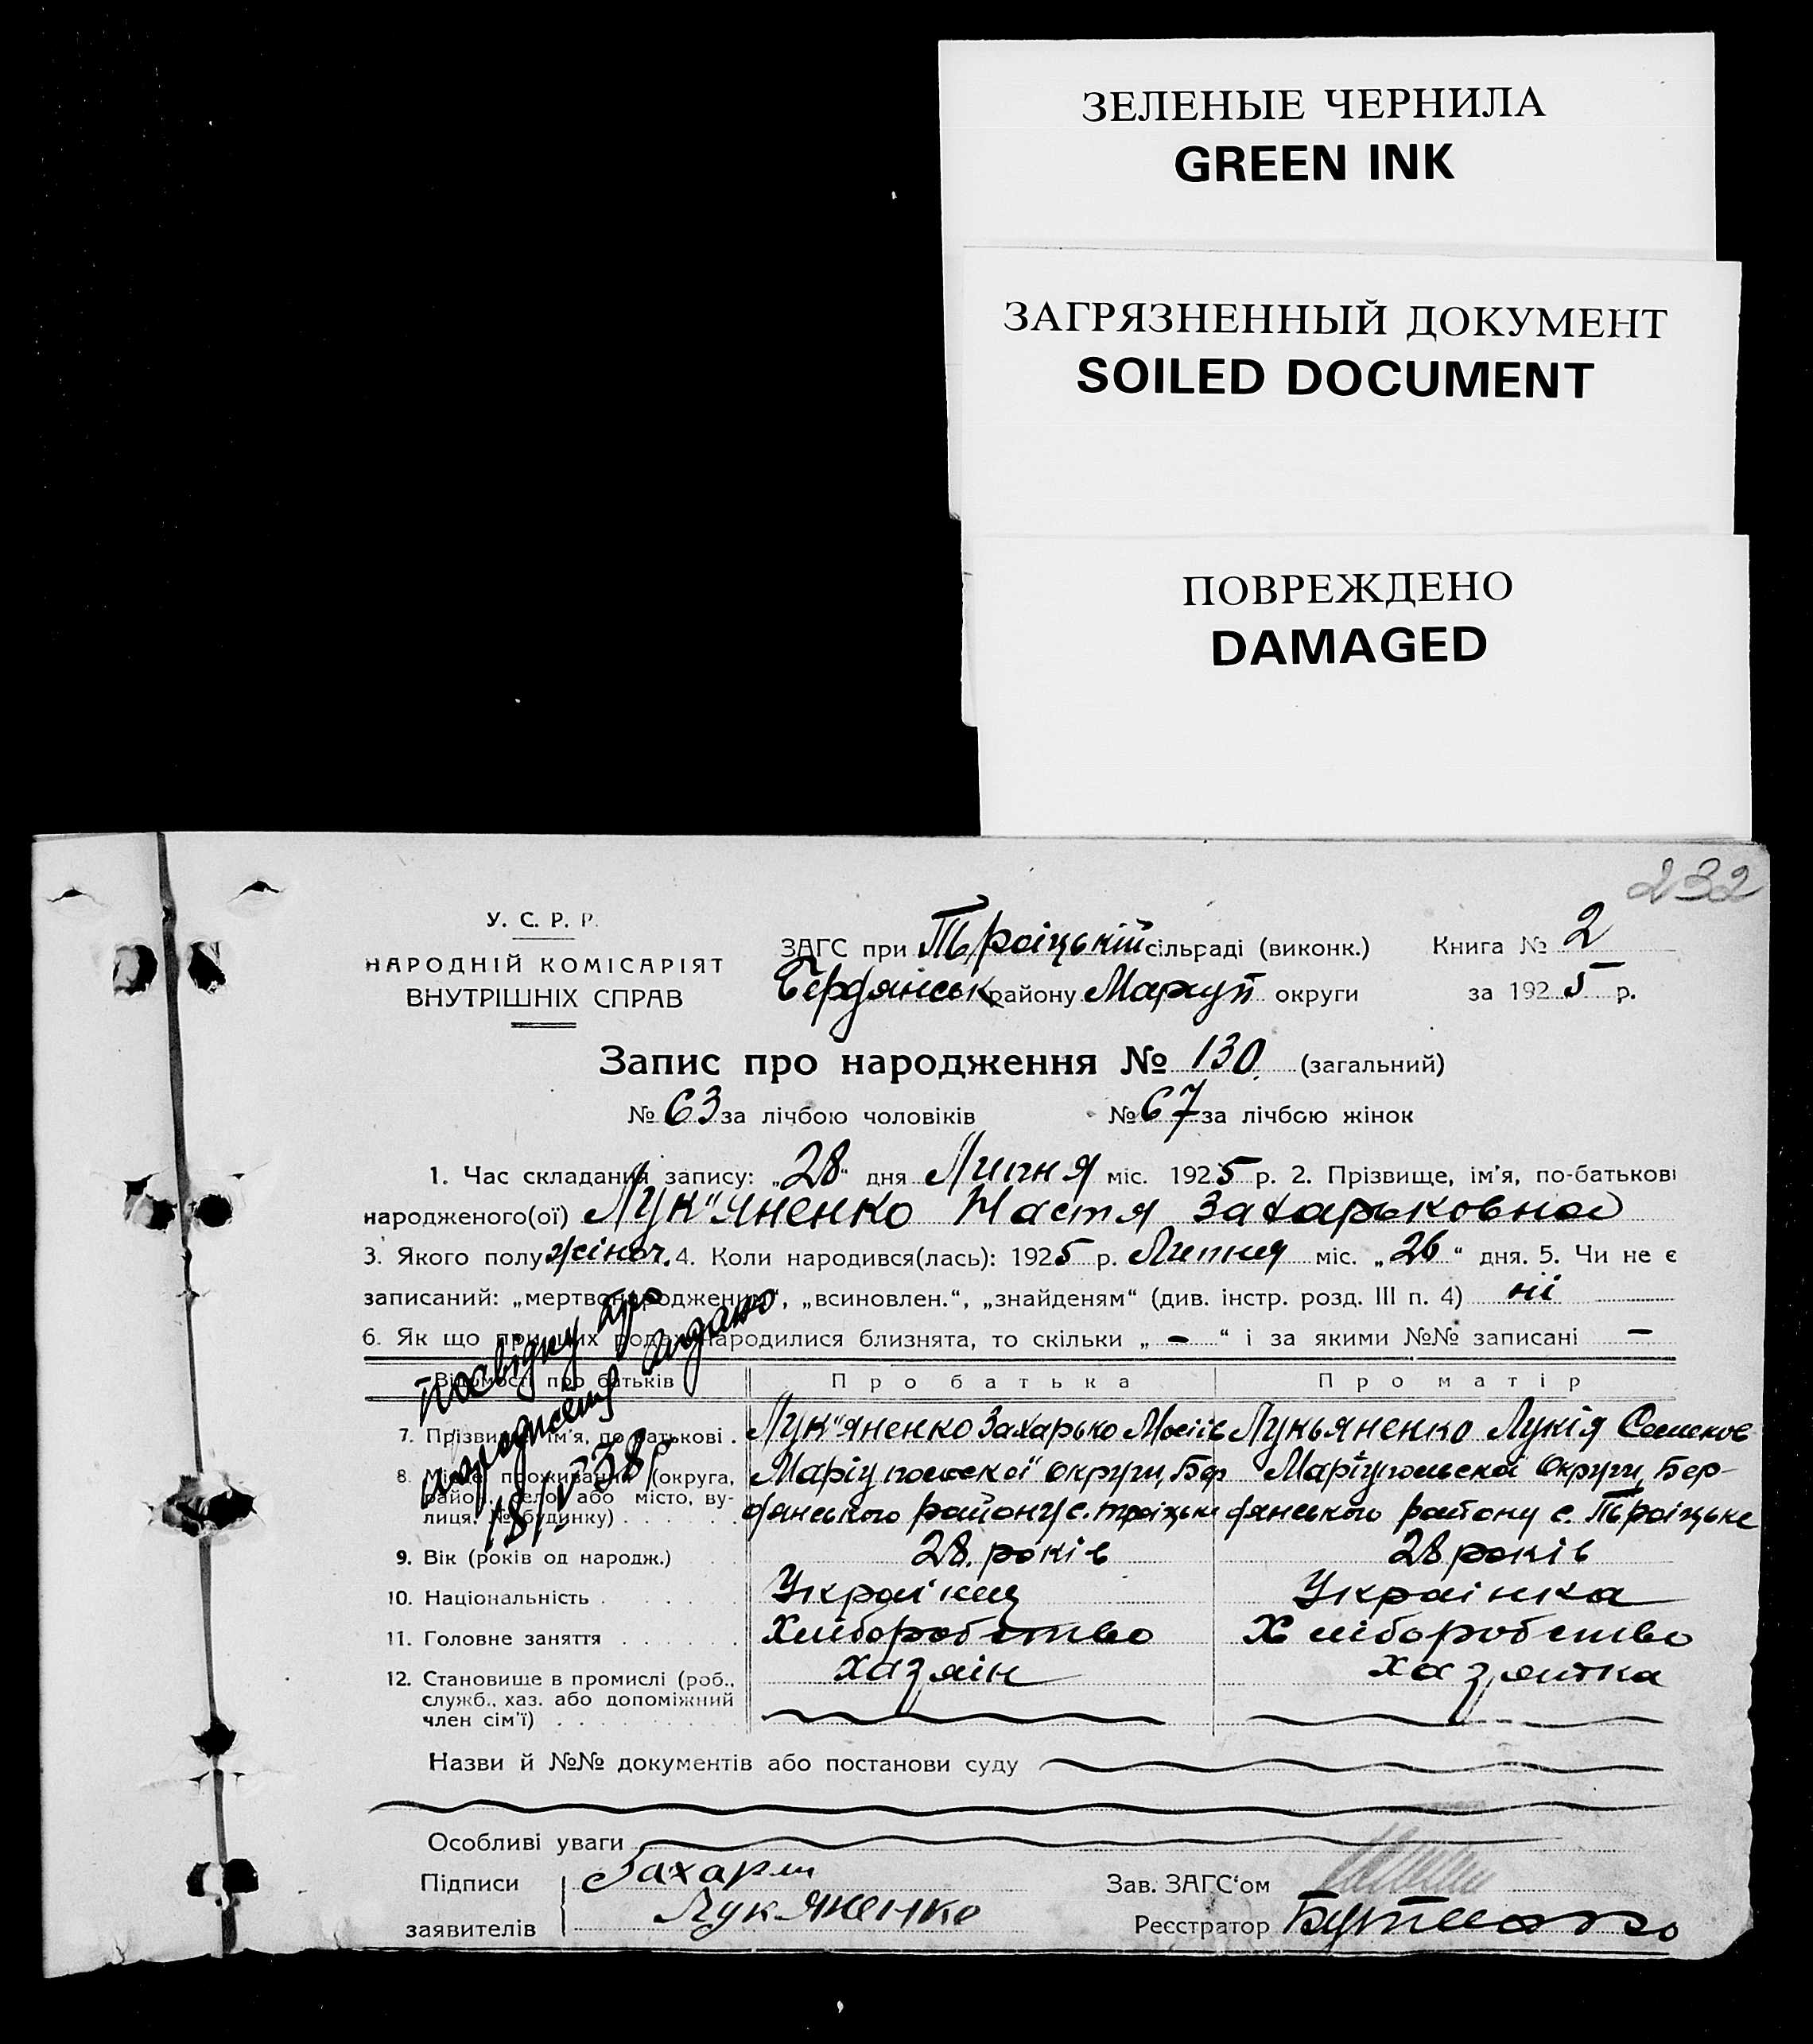 ЗЕЛЕНЫЕ ЧЕРНИЛА
GREEN INK
ЗАГРЯЗНЕННЫЙ ДОКУМЕНТ
SOILED DOCUMENT
ПОВРЕЖДЕНО
DAMAGED
232
У. С. Р. Р.
НАРОДНІЙ КОМІСАРІЯТ
ВНУТРІШНІХ СПРАВ
ЗАГС при Троіцькій сільраді (виконк.) Книга № 2
Бердянськ району Маріуп округи за 1925 р.
Запис про народження № 130. (загальний)
№ 63 за лічбою чоловіків № 67 за лічбою жінок
1. Час складання запису: „28“ дня Липня міс. 1925 р. 2. Прізвище, ім'я, по-батькові
народженого(ої) Лук"яненко Настя Захарьковна
3. Якого полу жіноч. 4. Коли народився(лась): 1925 р. Липня міс. „26“ дня. 5. Чи не є
записаний: „мертвонароджений“, „всиновлен.“, „знайденям“ (див. інстр. розд. III п. 4) ні
6. Як що при цих родах народилися близнята, то скільки „ – “ і за якими №№ записані –
Посвідку про
народження видано
18/V 38р
Відомості про батьків Про батька Про матір
7. Прізвище, ім'я, по-батькові . Лук"яненко Захарько Мосіів Лукьяненко Лукія Семенов
8. Місце проживання (округа, район, село або місто, вулиця, № будинку) Маріупольскої округи, Бер Маріупольскоі Округи, Бер-
дянського району с. Троіцьке дянського району с. Троіцьке
9. Вік (років од народж.) 28. років 28 років
10. Національність . Украінец Украінка
11. Головне заняття . Хліборобство Хліборобство
12. Становище в промислі (роб., хазяін хазяйка
служб., хаз. або допоміжний
член сім'ї) .
Назви й №№ документів або постанови суду
Особливі уваги
Підписи Захарій Зав. ЗАГС'ом
заявителів Лукяненко Реєстратор